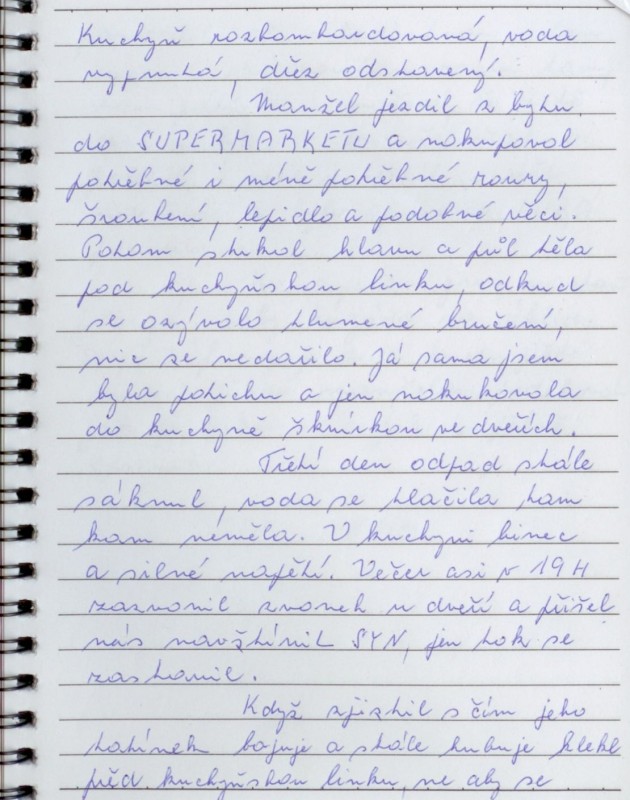 Kuchyň rozbombardovaná, voda
vypnutá, dřez odstavený.
Manžel jezdil z bytu
do SUPERMARKETU a nakupoval
potřebné i méně potřebné roury,
šroubení, lepidlo a podobné věci.
Potom strkal hlavu a půl těla
pod kuchyňskou linku, odkud
se ozývalo tlumené bručení,
nic se nedařilo. Já sama jsem
byla potichu a jen nakukovala
do kuchyně škvírkou ve dveřích.
Třetí den odpad stále
sáknul, voda se tlačila tam
kam neměla. V kuchyni binec
a silné napětí. Večer asi v 19 H
zazvonil zvonek u dveří a přišel
nás navštívit SYN, jen tak se
zastavil.
Když zjistil s čím jeho
tatínek bojuje a stále hubuje klekl
před kuchyňskou linku, ne aby se